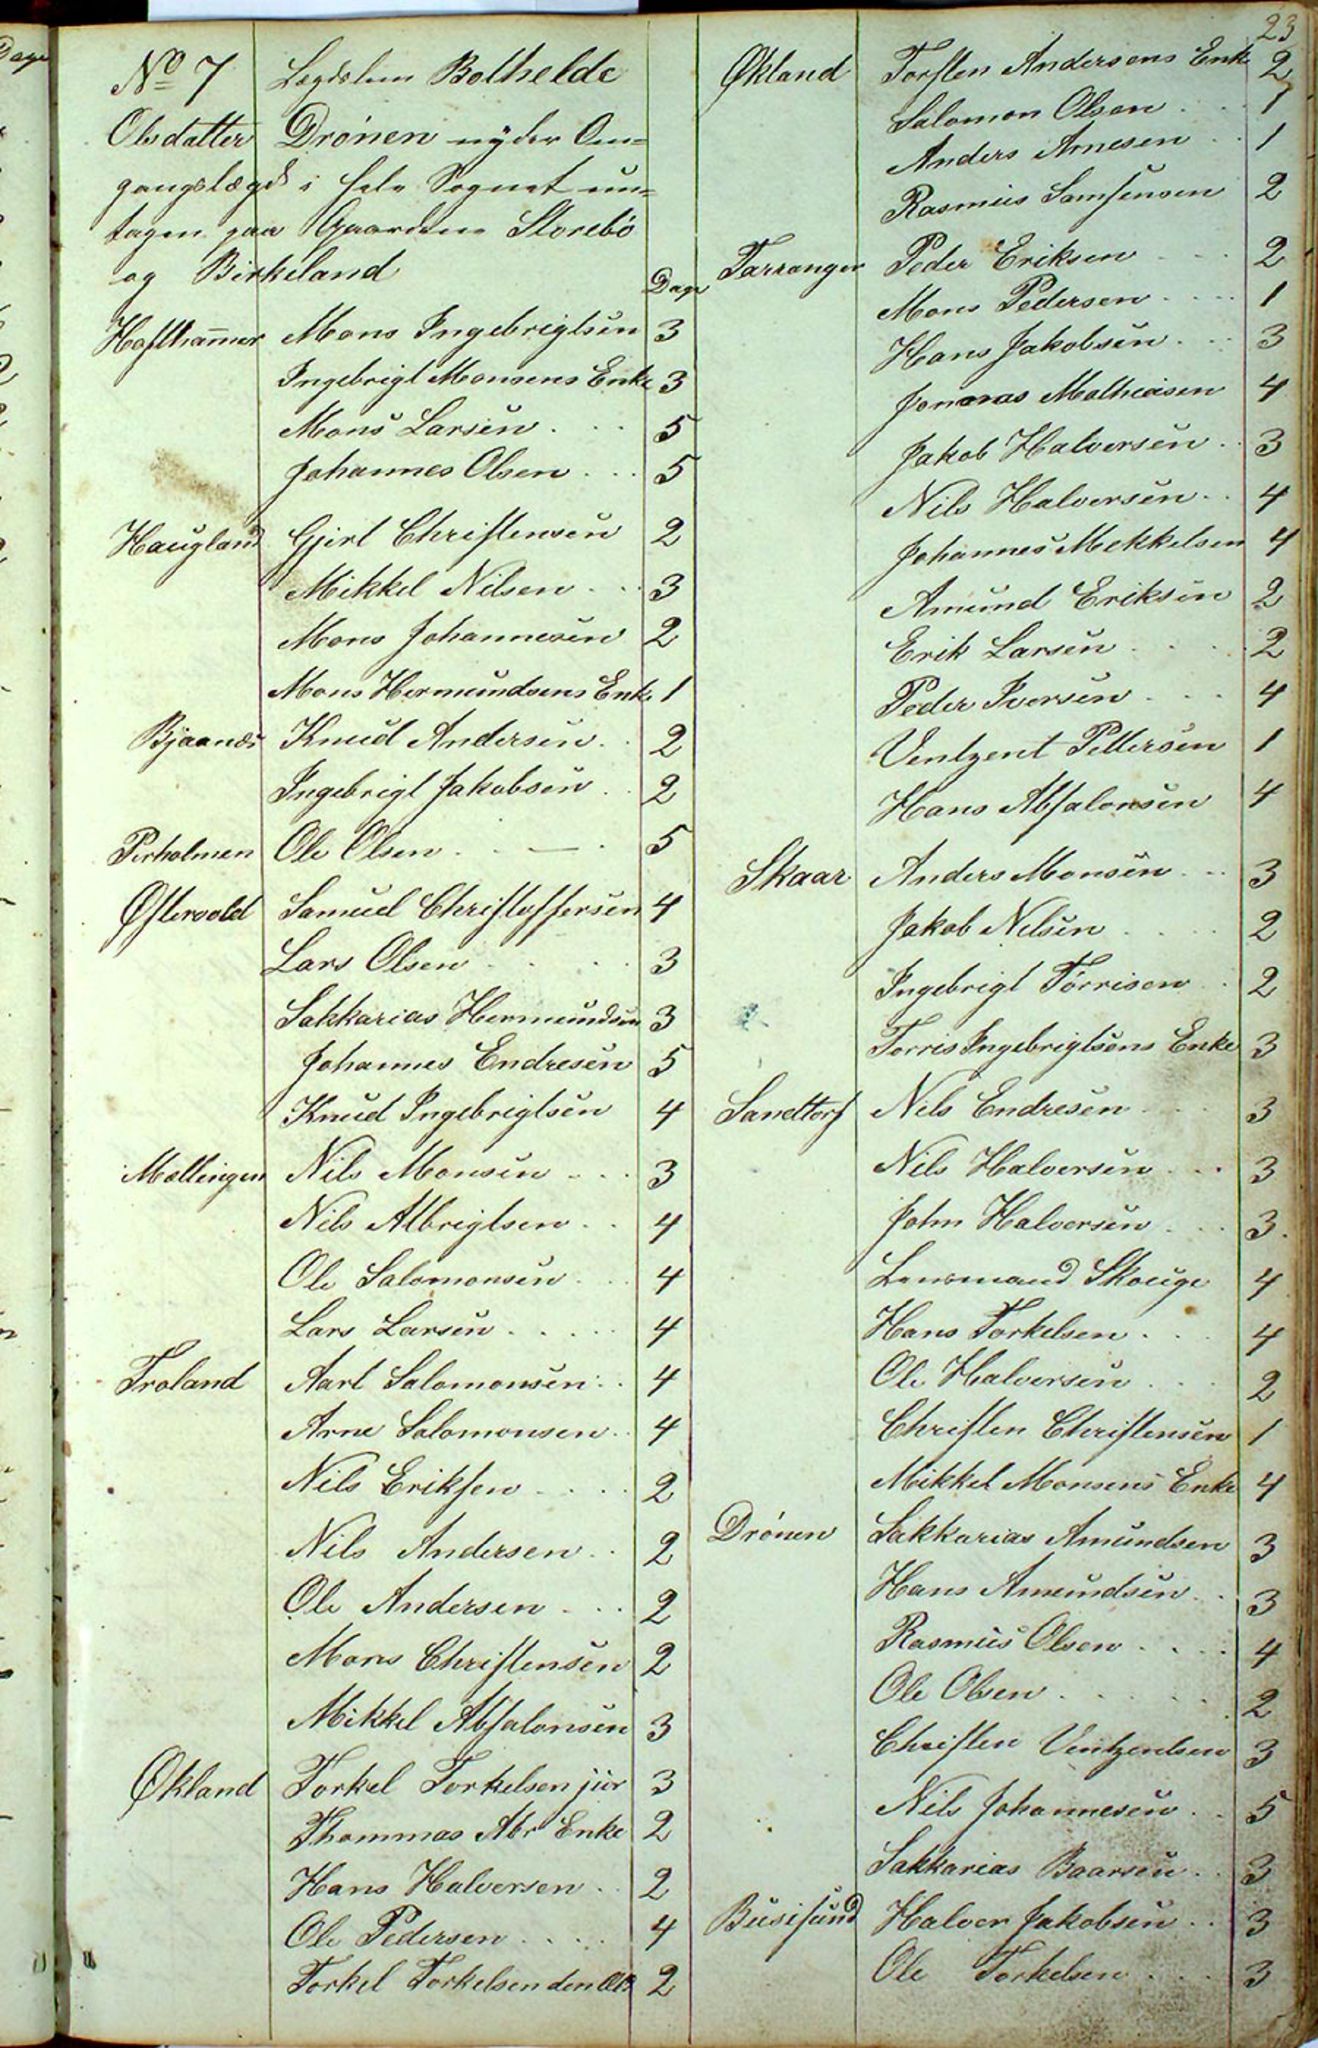 23
No 7 Lægdslem Bolthelde
Olsdatter Drönen nyder Om=
gangslægd i hele Sognet un=
tagen paa Gaardene Storebö
og Birkeland
Dage
Hofthammer Mons Ingebrigtsen 3
Ingebrigt Monsens Enke 3
Mons Larsen 5
Johannes Olsen 5
Haugland Gjert Christensen 2
Mikkel Nilsen 3
Mons Johannesen 2
Mons Hermundsens Enke 1
Bjaanæs Knud Andersen 2
Ingebrigt Jakobsen 2
Perholmen Ole Olsen 5
Østervold Samuel Christoffersen 4
Lars Olsen 3
Sakkarias Hermundsen 3
Johannes Endresen 5
Knud Ingebrigtsen 4
Møllingen Nils Monsen 3
Nils Albrigtsen 4
Ole Salomonsen 4
Lars Larsen 4
Troland Aarl Salomonsen 4
Arne Salomonsen 4
Nils Eriksen 2
Nils Andersen 2
Ole Andersen 2
Mons Christensen 2
Mikkel Absalonsen 3
Økland Torkel Torkelsen jur 3
Thommas Abr Enke 2
Hans Halversen 2
Ole Pedersen 4
Torkel Torkelsen den Æld 2
Økland Torsten Andersens Enk 2
Salomon Olsen 1
Anders Arnesen 1
Rasmus Samsensen 2
Tarranger Peder Eriksen 2
Mons Pedersen 1
Hans Jakobsen 3
Jonnas Mathiasen 4
Jakob Halversen 3
Nils Halversen 4
Johannes Mekkelsen 4
Amund Eriksen 2
Erik Larsen 2
Peder Iversen 4
Ventzent Pettersen 1
Hans Absalonsen 4
Skaar Anders Monsen 3
Jakob Nilsen 2
Ingebrigt Törrisen 2
Torris Ingebrigtsens Enke 3
Sandtorf Nils Endresen 3
Nils Halversen 3
John Halversen 3
Lensmand Skouge 4
Hans Torkelsen 4
Ole Halversen 2
Christen Christensen 1
Mikkel Monsens Enke 4
Drönen Sakkarias Amundsen 3
Hans Amundsen 3
Rasmus Olsen 4
Ole Olsen 2
Christen Ventzentsen 3
Nils Johannesen 5
Sakkarias Baarsen 3
Busesund Halver Jakobsen 3
Ole Torkelsen 3